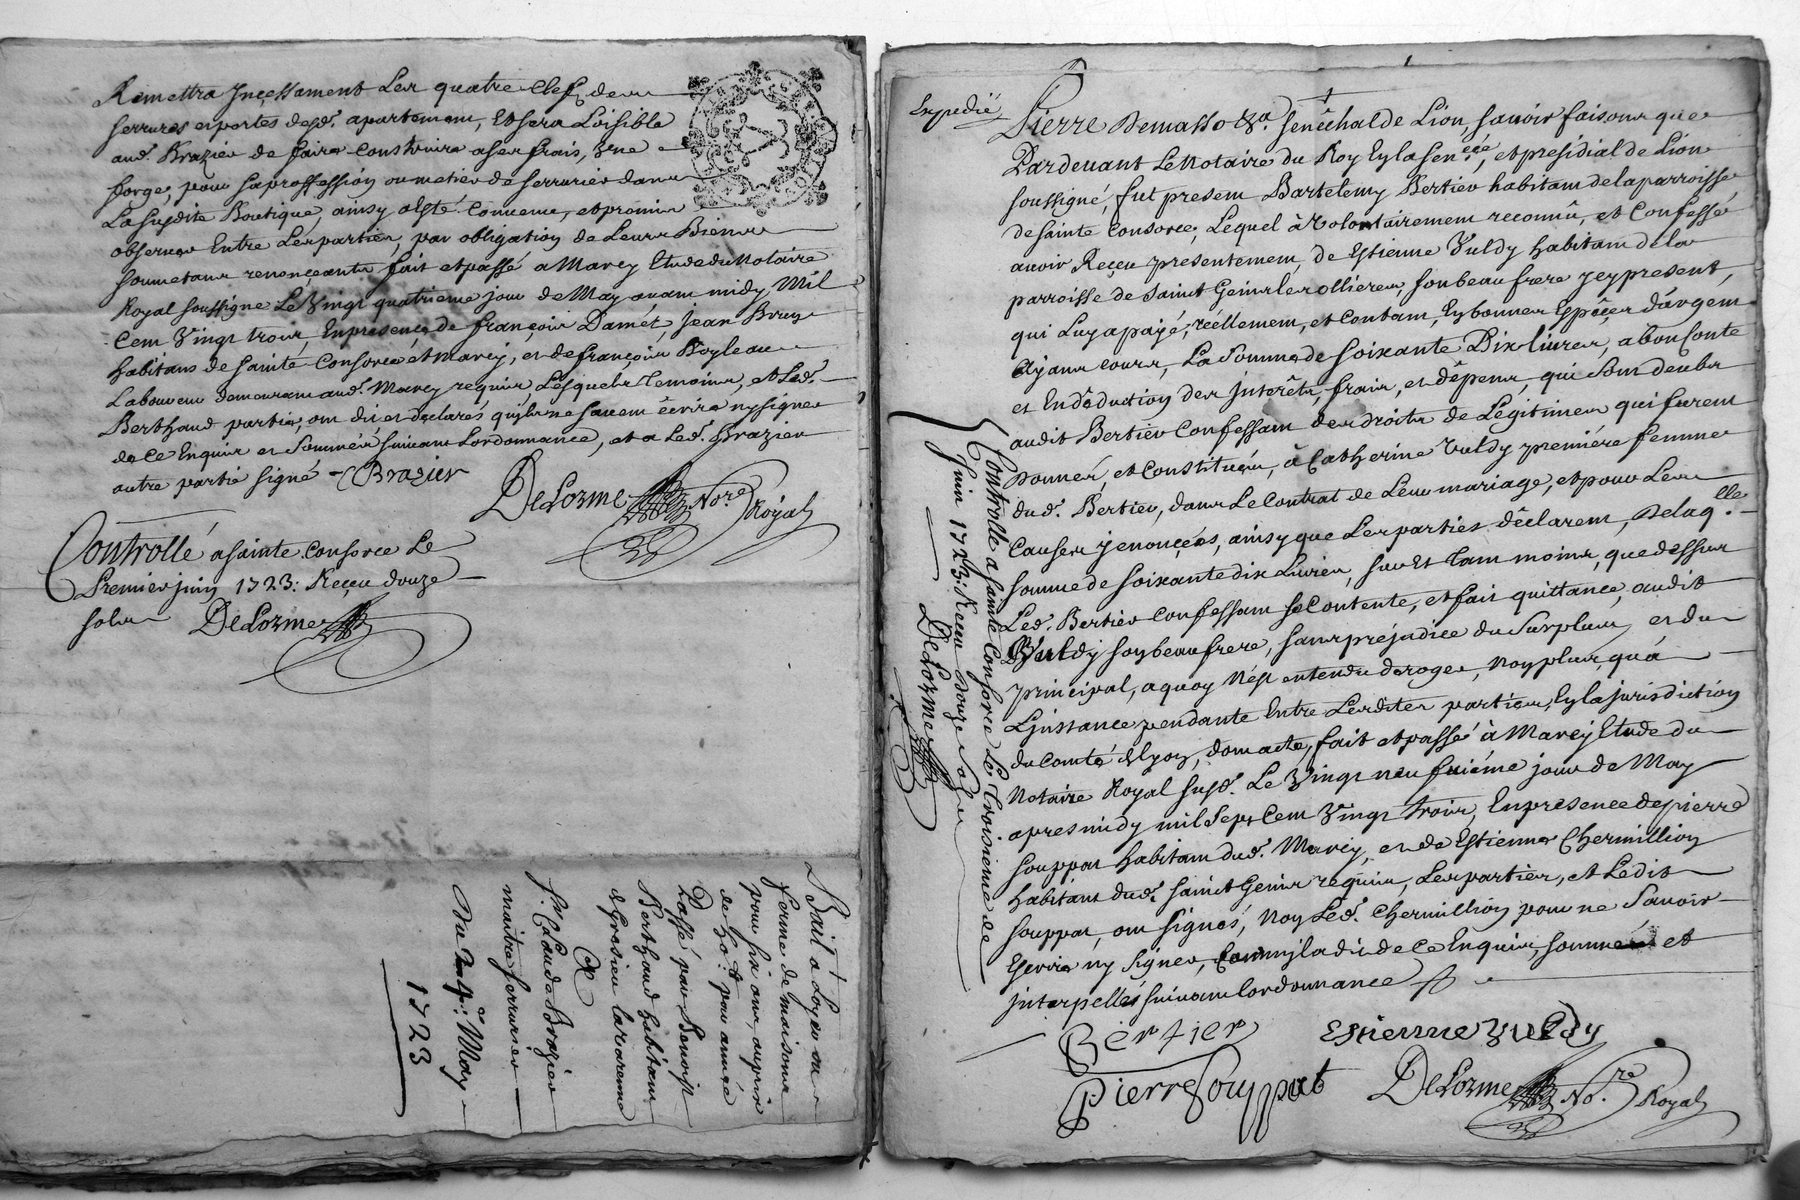 Remettra Incessament Les quatre Clefs des
serrures et portes desd. apartemens, Et sera Loisible
aud. Brazier de faire Construire a ses frais, Une
forge, pour sa proffession ou metier de serrurier dans
La susdite Boutique, ainsy a esté Convenu, et promis
observer Entre Les parties, par obligation de Leurs Biens
soumetans renonçeants, fait et passé a Marcy Etude du Notaire
Royal soussigné Le Vingt quatrieme jour de May avant midy, Mil
Cent Vingt trois, En presence de françois Damet, Jean Bruy
habitans de sainte Consorce et Marcy, et de françois Boyleau
Laboureur demeurant aud. Marcy requis, Lesquels temoins, et Led.
Berthaud partie, ont dit et declarés quils ne savent êcrire ny signer
de ce Enquis et Sommés suivant Lordonnance, et a Led. Brazier
autre partie signé - Brazier
DeLorme No.re Royal
Controllé a sainte Consorce Le
Premier juin 1723: Reçu douze
sols DeLorme
Bail a Loyer ou
ferme de maisons
pour six ans, au prix
de 20.# par année
Passé par Benoist
Berthaud habitant
de Grezieu la varenne
A
Sr. Claude Brazier
maitre serrurier
Du 24e. May
1723
Expedié
Pierre Demasso &a. senêchal de Lion, savoir faisons que
Pardevant Le Notaire du Roy En la sen.cée, et presidial de Lion
soussigné, fut present Bartelemy Bertier habitant de la parroisse
de sainte Consorce, Lequel à volontairement reconnû, et Confessé
avoir Reçu presentement, de Estienne Vuldy habitant de la
parroisse de Saint Genis les ollieres, son beau frere icy present,
qui Luy a payé, rêellement, et Contant, En bonnes Espêces d'argent
Ayant cours, La Somme de soixante Dix livres, a bon Conte
et En dêduction des Interêts, frais, et dêpens, qui sont deubs
audit Bertier Confessant des droits de Legitimes qui furent
Donnés, et Constitués, à Catherine Vuldy premiére femme
dud. Bertier, dans Le Contrat de Leur mariage, et pour Les
Causes y enonçées, ainsy que Les parties dêclarent, De laq.lle
somme de soixante dix Livres, sur Et tant moins, que dessus
Led. Bertier Confessant se Contente, et fait quittance, audit
Vuldy son beau frere, sans préjudice du Surplus et du
principal, a quoy N'est entendu deroger, Non plus, qu'à
L'instance pendante Entre Lesdites parties, En la jurisdiction
du Comté de Lyon, dont acte, fait et passé à Marcy Etude du
Notaire Royal susd. Le Vingt neufviéme jour de May
apres midy mil Sept Cent Vingt trois, En presence de pierre
souppat habitant dud. Marcy, et de Estienne Chermillion
habitant dud. saint Genis requis, Les parties, et Ledit
souppat, ont signés, Non Led. Chermillion pour ne Savoir
Escrire ny Signer, Comme il a dit de Ce Enquis, sommés et
interpellés suivant lordonnance
Bertier
Estienne Vuldy
Pierre Souppat
DeLorme No.re Royal
Controllé a sainte Consorce Le troisiéme de
Juin 1723: Reçu douze sols
DeLorme